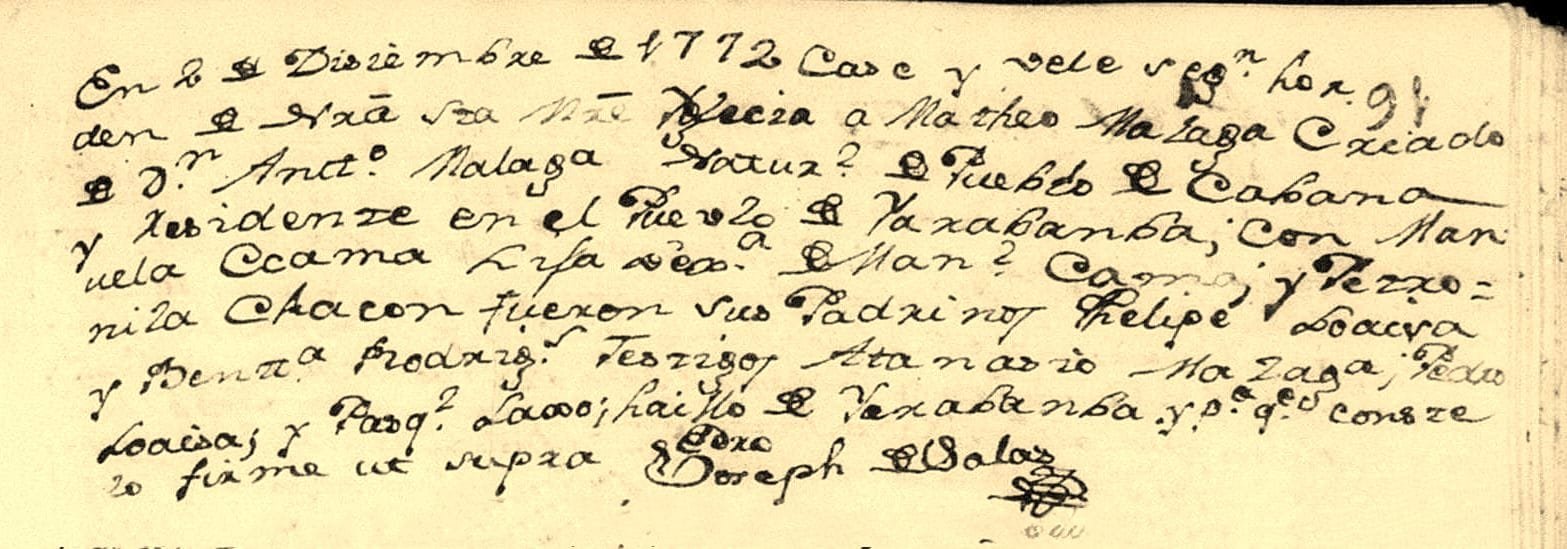 En 2 de Disiembre de 1772 Case y vele segn hor
91
den de Nrã Sta Mrē Yglecia a Matheo Malaga Criado
de Dn Antto Malaga Natur.l de Pueblo de Cabana
y Residente en el Pueblo de Yarabanba; con Man
uela Ccama hija de Man.l Cama; y Petro=
nila Chacon fueron sus Padrinos Phelipe Loaisa
y Bentta Rodrigs Testigos Atanasio Malaga; Pedro
Loaisa; y Pasq.l Lasso; de Yarabanba y pa qe conste
lo firme ut supra Joseph de Salas